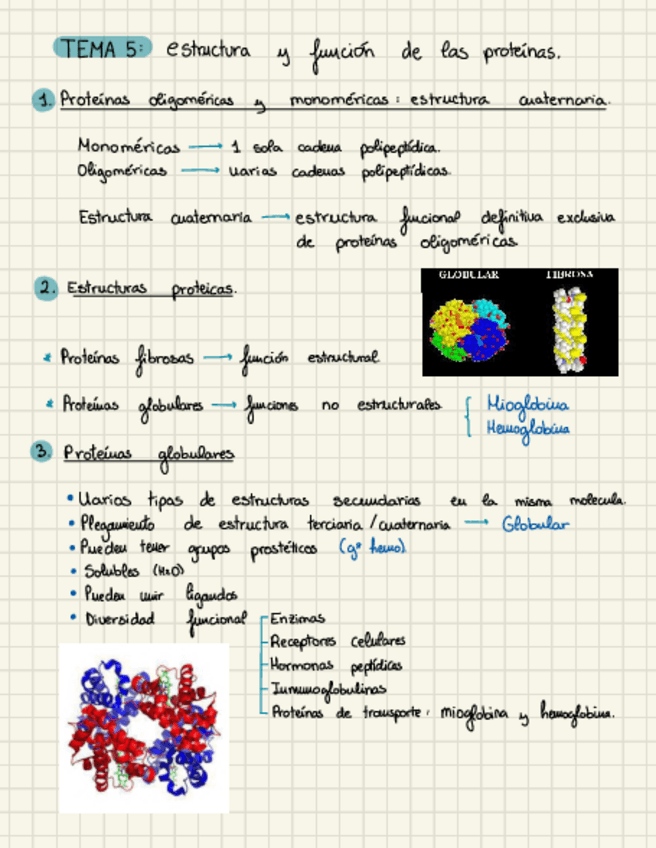 TEMA 5: estructura y función de las proteínas.
1. Proteínas oligoméricas y monoméricas: estructura cuaternaria.
Monoméricas → 1 sola cadena polipeptídica.
Oligoméricas → varias cadenas polipeptídicas.
Estructura cuaternaria → estructura funcional definitiva exclusiva
de proteínas oligoméricas
2. Estructuras proteicas.
GLOBULAR FIBROSA
* Proteínas fibrosas → función estructural
* Proteínas globulares → funciones no estructurales { Mioglobina
Hemoglobina
3. Proteínas globulares
• Varios tipos de estructuras secundarias en la misma molecula.
• Plegamiento de estructura terciaria/cuaternaria → Globular
• Pueden tener grupos prostéticos (gº hemo)
• Solubles (H2O)
• Pueden unir ligandos
• Diversidad funcional
Enzimas
Receptores celulares
Hormonas peptídicas
Inmunoglobulinas
Proteínas de transporte: mioglobina y hemoglobina.